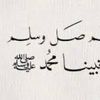 م صل وسلم
نبينا محمد ﷺ